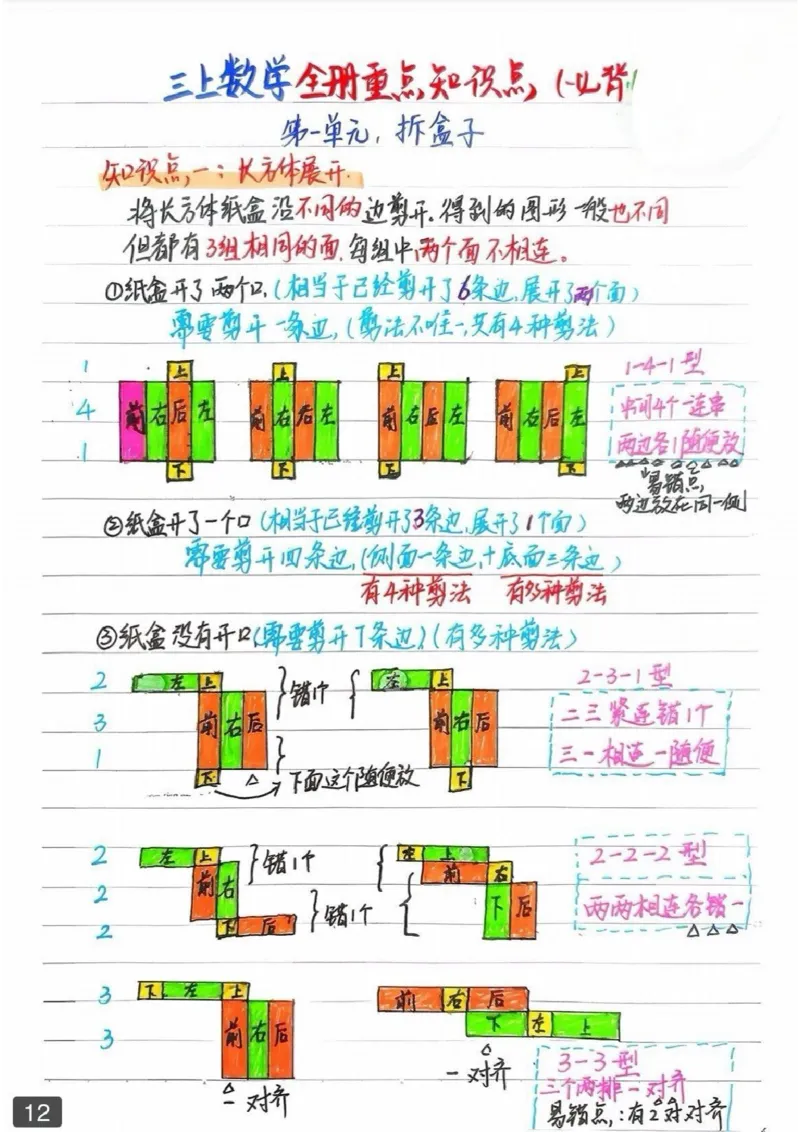 三上数学全册重点知识点(一)必背
第一单元，拆盒子
知识点一：长方体展开.
将长方体纸盒沿不同的边剪开.得到的图形一般也不同
但都有3组相同的面.每组中,两个面不相连。
①纸盒开了两个口.(相当于已经剪开了6条边,展开了两个面)
需要剪开一条边,(剪法不唯一,共有4种剪法)
1 上 上 上 上 1-4-1型
4 前右后左 前右后左 前右后左 前右后左 中间4个一连串
1 下 下 下 下 两边各1随便放
易错点,
两边放在同一侧
②纸盒开了一个口(相当于已经剪开了3条边,展开了1个面)
需要剪开四条边,(侧面一条边,+底面三条边)
有4种剪法 有多种剪法
③纸盒没有开口(需要剪开7条边)(有多种剪法)
2 左 上 错1个 左 上 2-3-1型
3 前右后 前右后 二三紧连错1个
1 下 下面这个随便放 下 三一相连一随便
2 左 上 错1个 左 上 2-2-2型
2 前右 错1个 前 右 两两相连各错一
2 下 后 下 后
3 下 左 上 前 右 后
3 前右后 下 左 上
一对齐 一对齐 3-3型
三个两排一对齐
易错点:有2对对齐
12